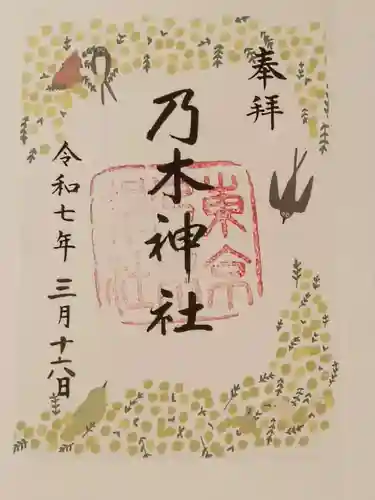 奉拝
乃木神社
令和七年 三月十六日